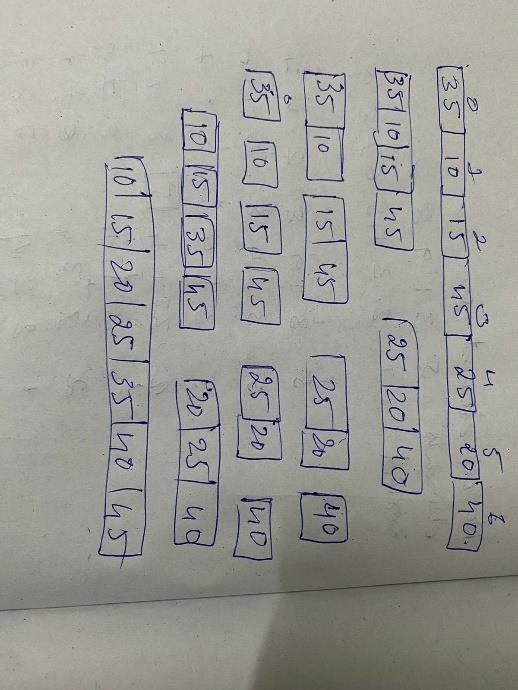 0 1 2 3 4 5 6
35 10 15 45 25 20 40
35 10 15 45 25 20 40
35 10 15 45 25 20 40
35 10 15 45 25 20 40
10 15 35 45 20 25 40
10 15 20 25 35 40 45